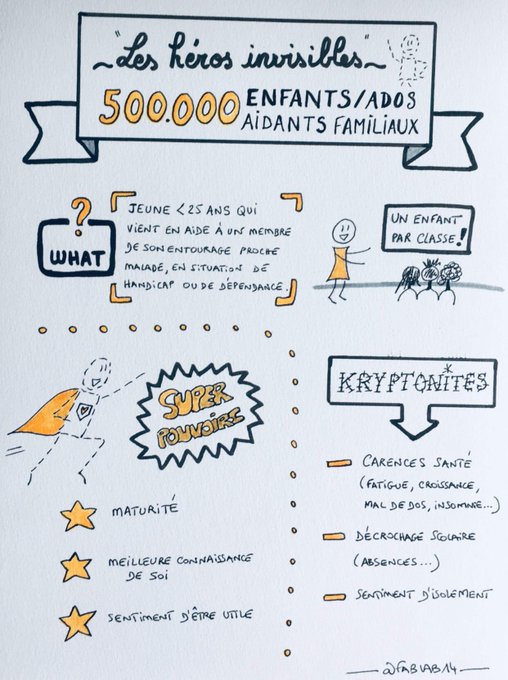 "Les héros invisibles"
500.000 ENFANTS/ADOS
AIDANTS FAMILIAUX
?
WHAT
JEUNE < 25 ANS QUI
VIENT EN AIDE À UN MEMBRE
DE SON ENTOURAGE PROCHE
MALADE, EN SITUATION DE
HANDICAP OU DE DÉPENDANCE.
UN ENFANT
PAR CLASSE!
SUPER
POUVOIRS
MATURITÉ
MEILLEURE CONNAISSANCE
DE SOI
SENTIMENT D'ÊTRE UTILE
KRYPTONITES*
CARENCES SANTÉ
(FATIGUE, CROISSANCE,
MAL DE DOS, INSOMNIE...)
DÉCROCHAGE SCOLAIRE
(ABSENCES...)
SENTIMENT D'ISOLEMENT
@FABLAB14